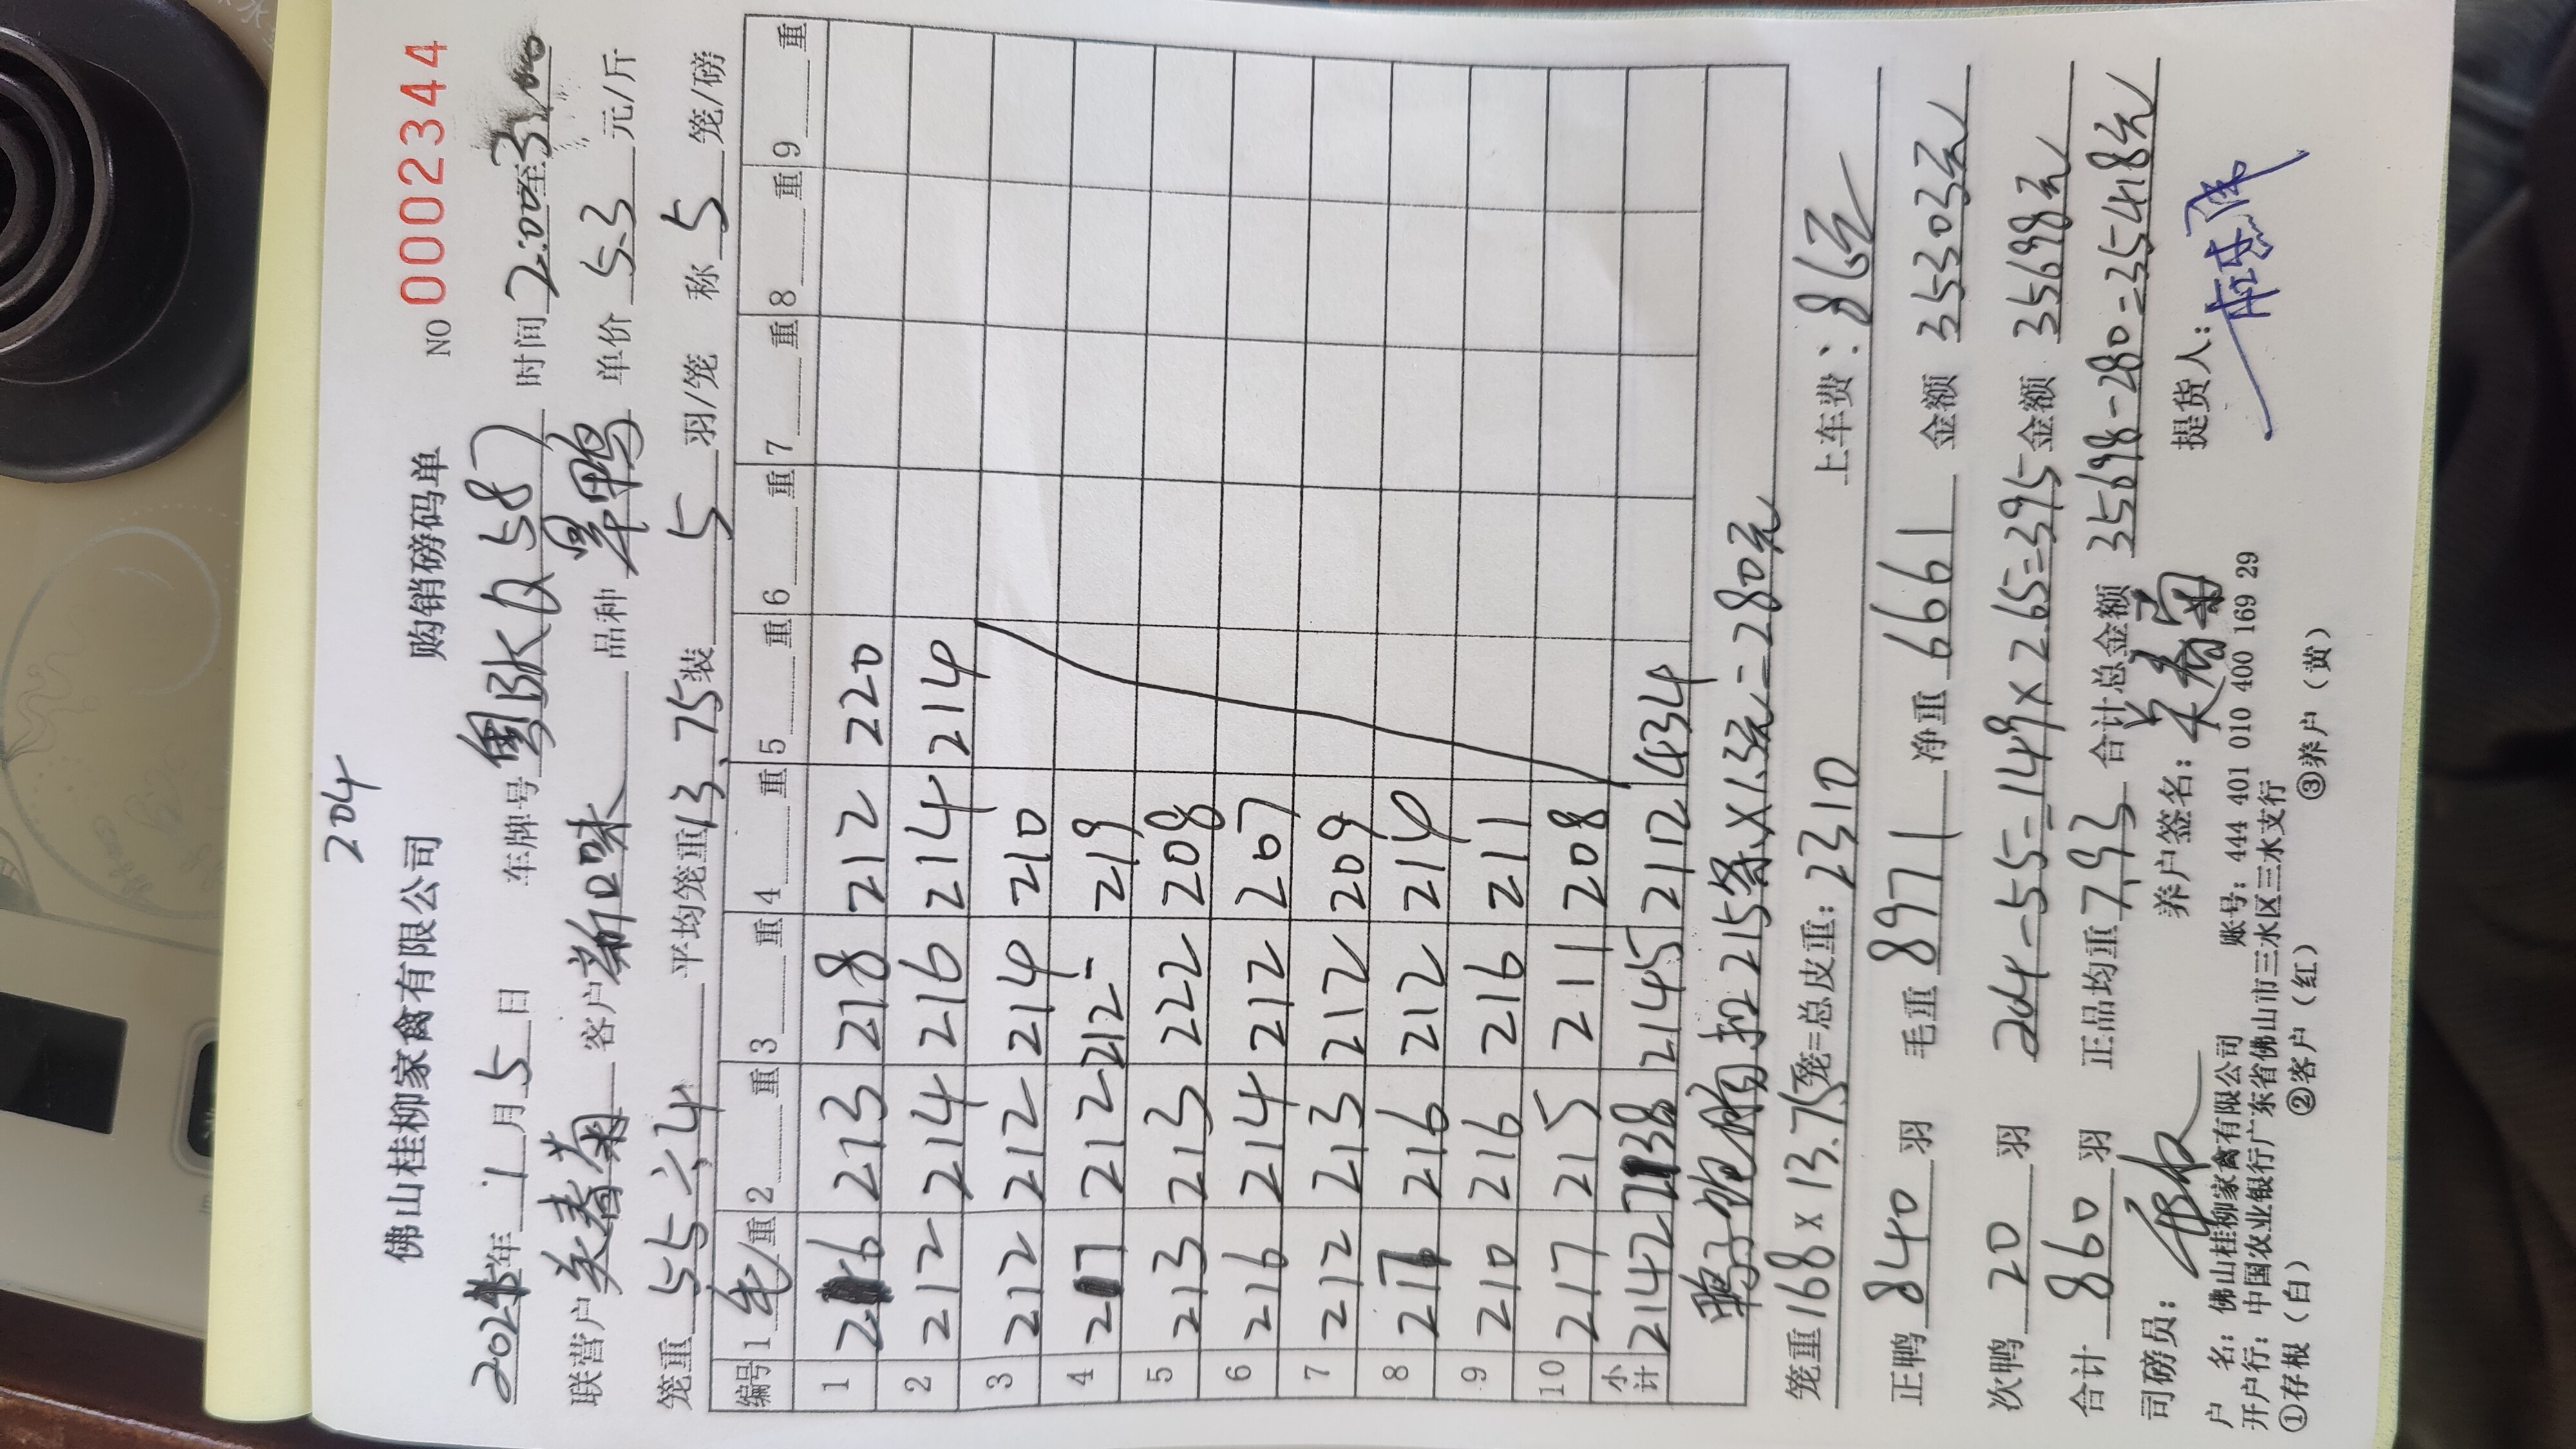 204
佛山桂柳家禽有限公司 购销磅码单 NO 0002344
年 1 月 5 日 车牌号 粤BKQ587 时间 2:00至3:00
联营户 关春菊 客户 新口味 品种 单价 5.3 元/斤
笼重 55÷4 平均笼重 13.75 装 5 羽/笼 称 5 笼/磅
编号 1 毛重 2 重 3 重 4 重 5 重 6 重 7 重 8 重 9 重
1 216 213 218 212 220
2 212 214 216 214 214
3 212 212 214 210
4 217 212 212 219
5 213 213 222 208
6 216 214 212 207
7 212 213 212 209
8 217 216 212 214
9 210 216 216 211
10 217 215 211 208
小计 2142 2138 2145 2112 434
鸭子饱肉扣215斤×1.3元=280元
笼重168×13.75笼=总皮重:2310 上车费:86元
正鸭 840 羽 毛重 8971 净重 6661 金额 35303元
次鸭 20 羽 204-55=149×2.65=395 金额 35698元
合计 860 羽 正品均重 7.93 合计总金额 35698-280=35418元
司磅员: 养户签名: 关春菊 提货人:
户 名:佛山桂柳家禽有限公司 账号:444 401 010 400 169 29
开户行:中国农业银行广东省佛山市三水区三水支行
①存根(白) ②客户(红) ③养户(黄)